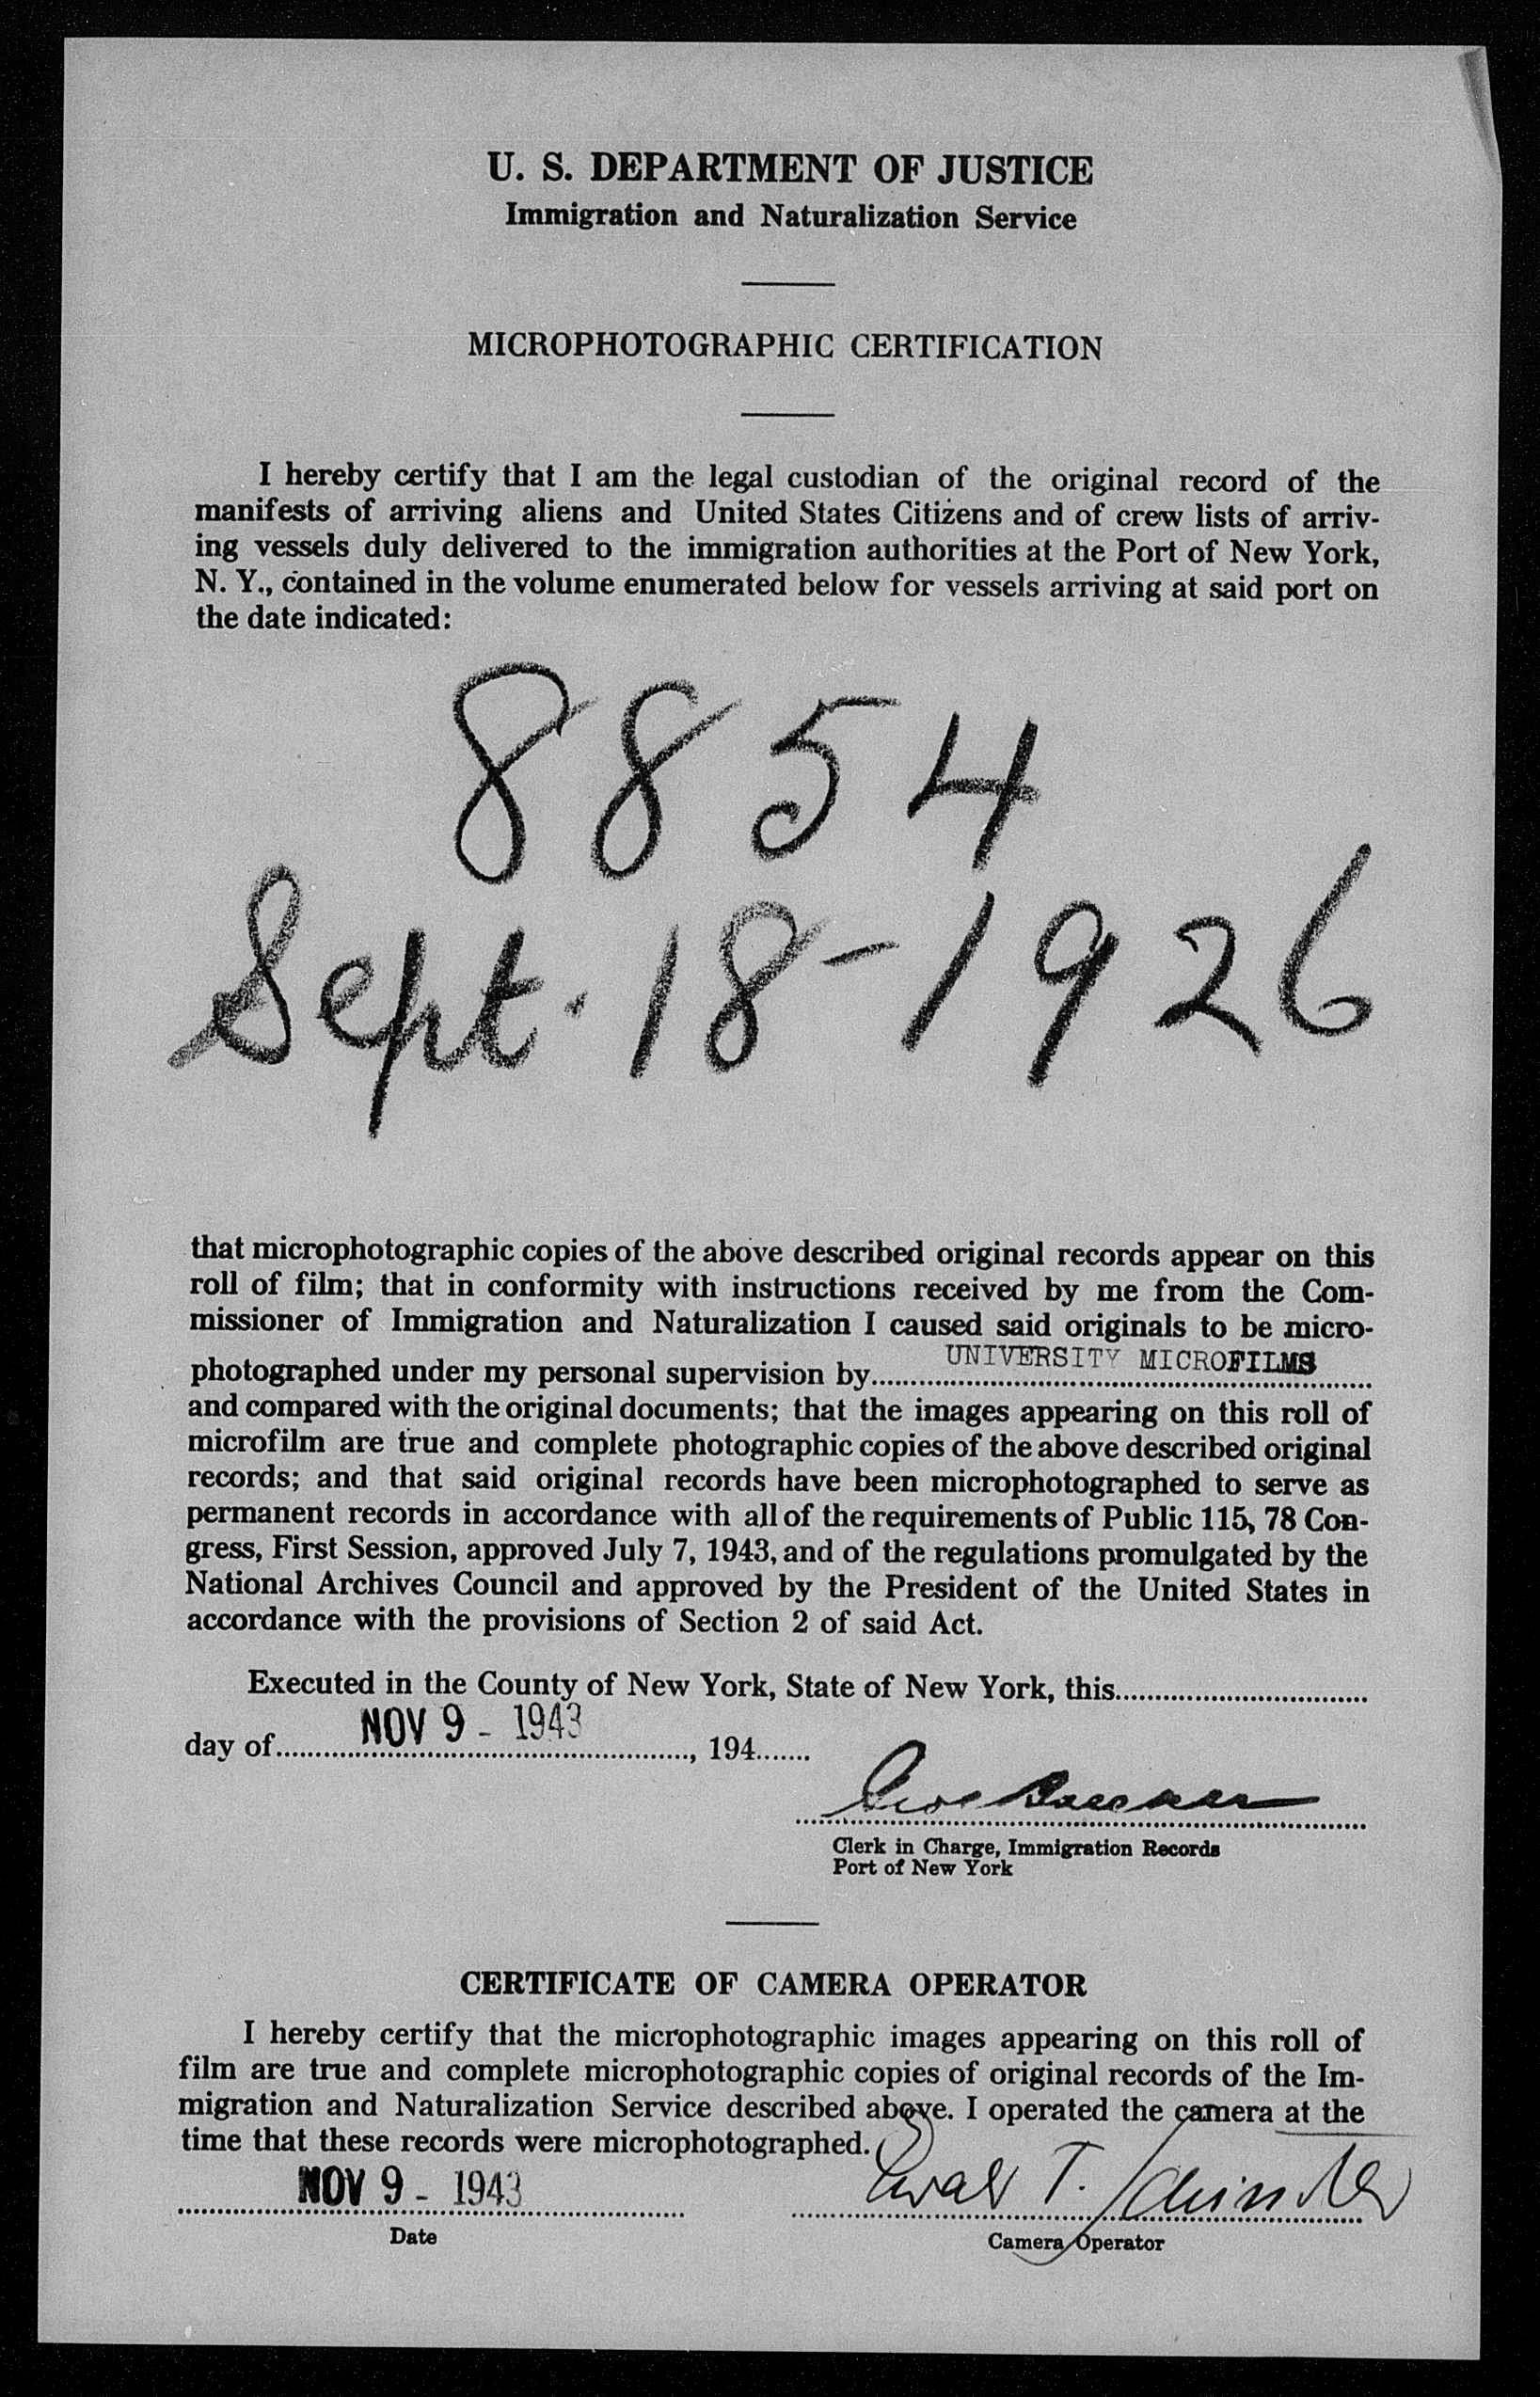 U. S. DEPARTMENT OF JUSTICE
Immigration and Naturalization Service
MICROPHOTOGRAPHIC CERTIFICATION
I hereby certify that I am the legal custodian of the original record of the
manifests of arriving aliens and United States Citizens and of crew lists of arriv-
ing vessels duly delivered to the immigration authorities at the Port of New York,
N. Y., contained in the volume enumerated below for vessels arriving at said port on
the date indicated:
8854
Sept. 18-1926
that microphotographic copies of the above described original records appear on this
roll of film; that in conformity with instructions received by me from the Com-
missioner of Immigration and Naturalization I caused said originals to be micro-
photographed under my personal supervision by UNIVERSITY MICROFILMS
and compared with the original documents; that the images appearing on this roll of
microfilm are true and complete photographic copies of the above described original
records; and that said original records have been microphotographed to serve as
permanent records in accordance with all of the requirements of Public 115, 78 Con-
gress, First Session, approved July 7, 1943, and of the regulations promulgated by the
National Archives Council and approved by the President of the United States in
accordance with the provisions of Section 2 of said Act.
Executed in the County of New York, State of New York, this
day of NOV 9 - 1943, 194
Clerk in Charge, Immigration Records
Port of New York
CERTIFICATE OF CAMERA OPERATOR
I hereby certify that the microphotographic images appearing on this roll of
film are true and complete microphotographic copies of original records of the Im-
migration and Naturalization Service described above. I operated the camera at the
time that these records were microphotographed.
NOV 9 - 1943 T.
Date Camera Operator